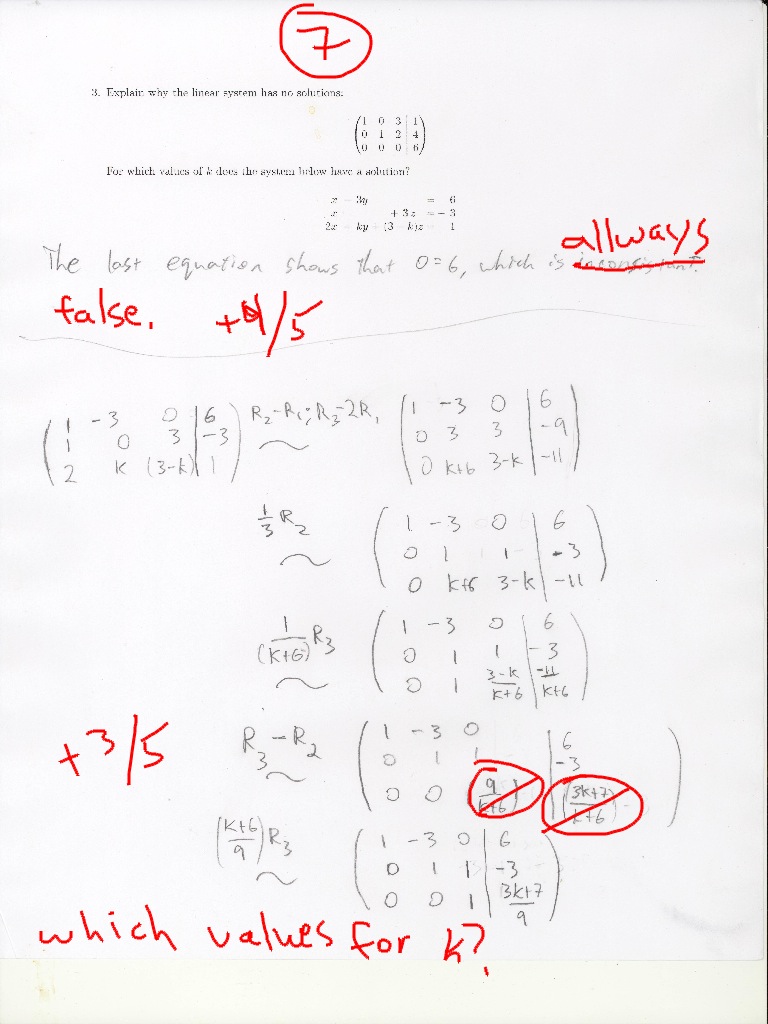 7
3. Explain why the linear system has no solutions:
1 0 3 | 1
0 1 2 | 4
0 0 0 | 6
For which values of k does the system below have a solution?
x - 3y = 6
x + 3z = - 3
2x ky (3 - k)z 1
allways
The last equation shows that 0=6, which is inconsistant.
false. +4/5
1 -3 0 | 6 R₂-R₁; R₃-2R₁ 1 -3 0 | 6
1 0 3 | -3 ~ 0 3 3 | -9
2 k (3-k) | 1 0 k+6 3-k | -11
1/3 R₂ 1 -3 0 | 6
~ 0 1 1 | -3
0 k+6 3-k | -11
1/(k+6) R₃ 1 -3 0 | 6
0 1 1 | -3
~ 0 1 3-k/k+6 | -11/k+6
+3/5 R₃-R₂ 1 -3 0 | 6
~ 0 1 1 | -3
0 0 9/k+6 | (3k+7)/k+6
(k+6/9) R₃ 1 -3 0 | 6
~ 0 1 1 | -3
0 0 1 | 3k+7/9
which values for k?